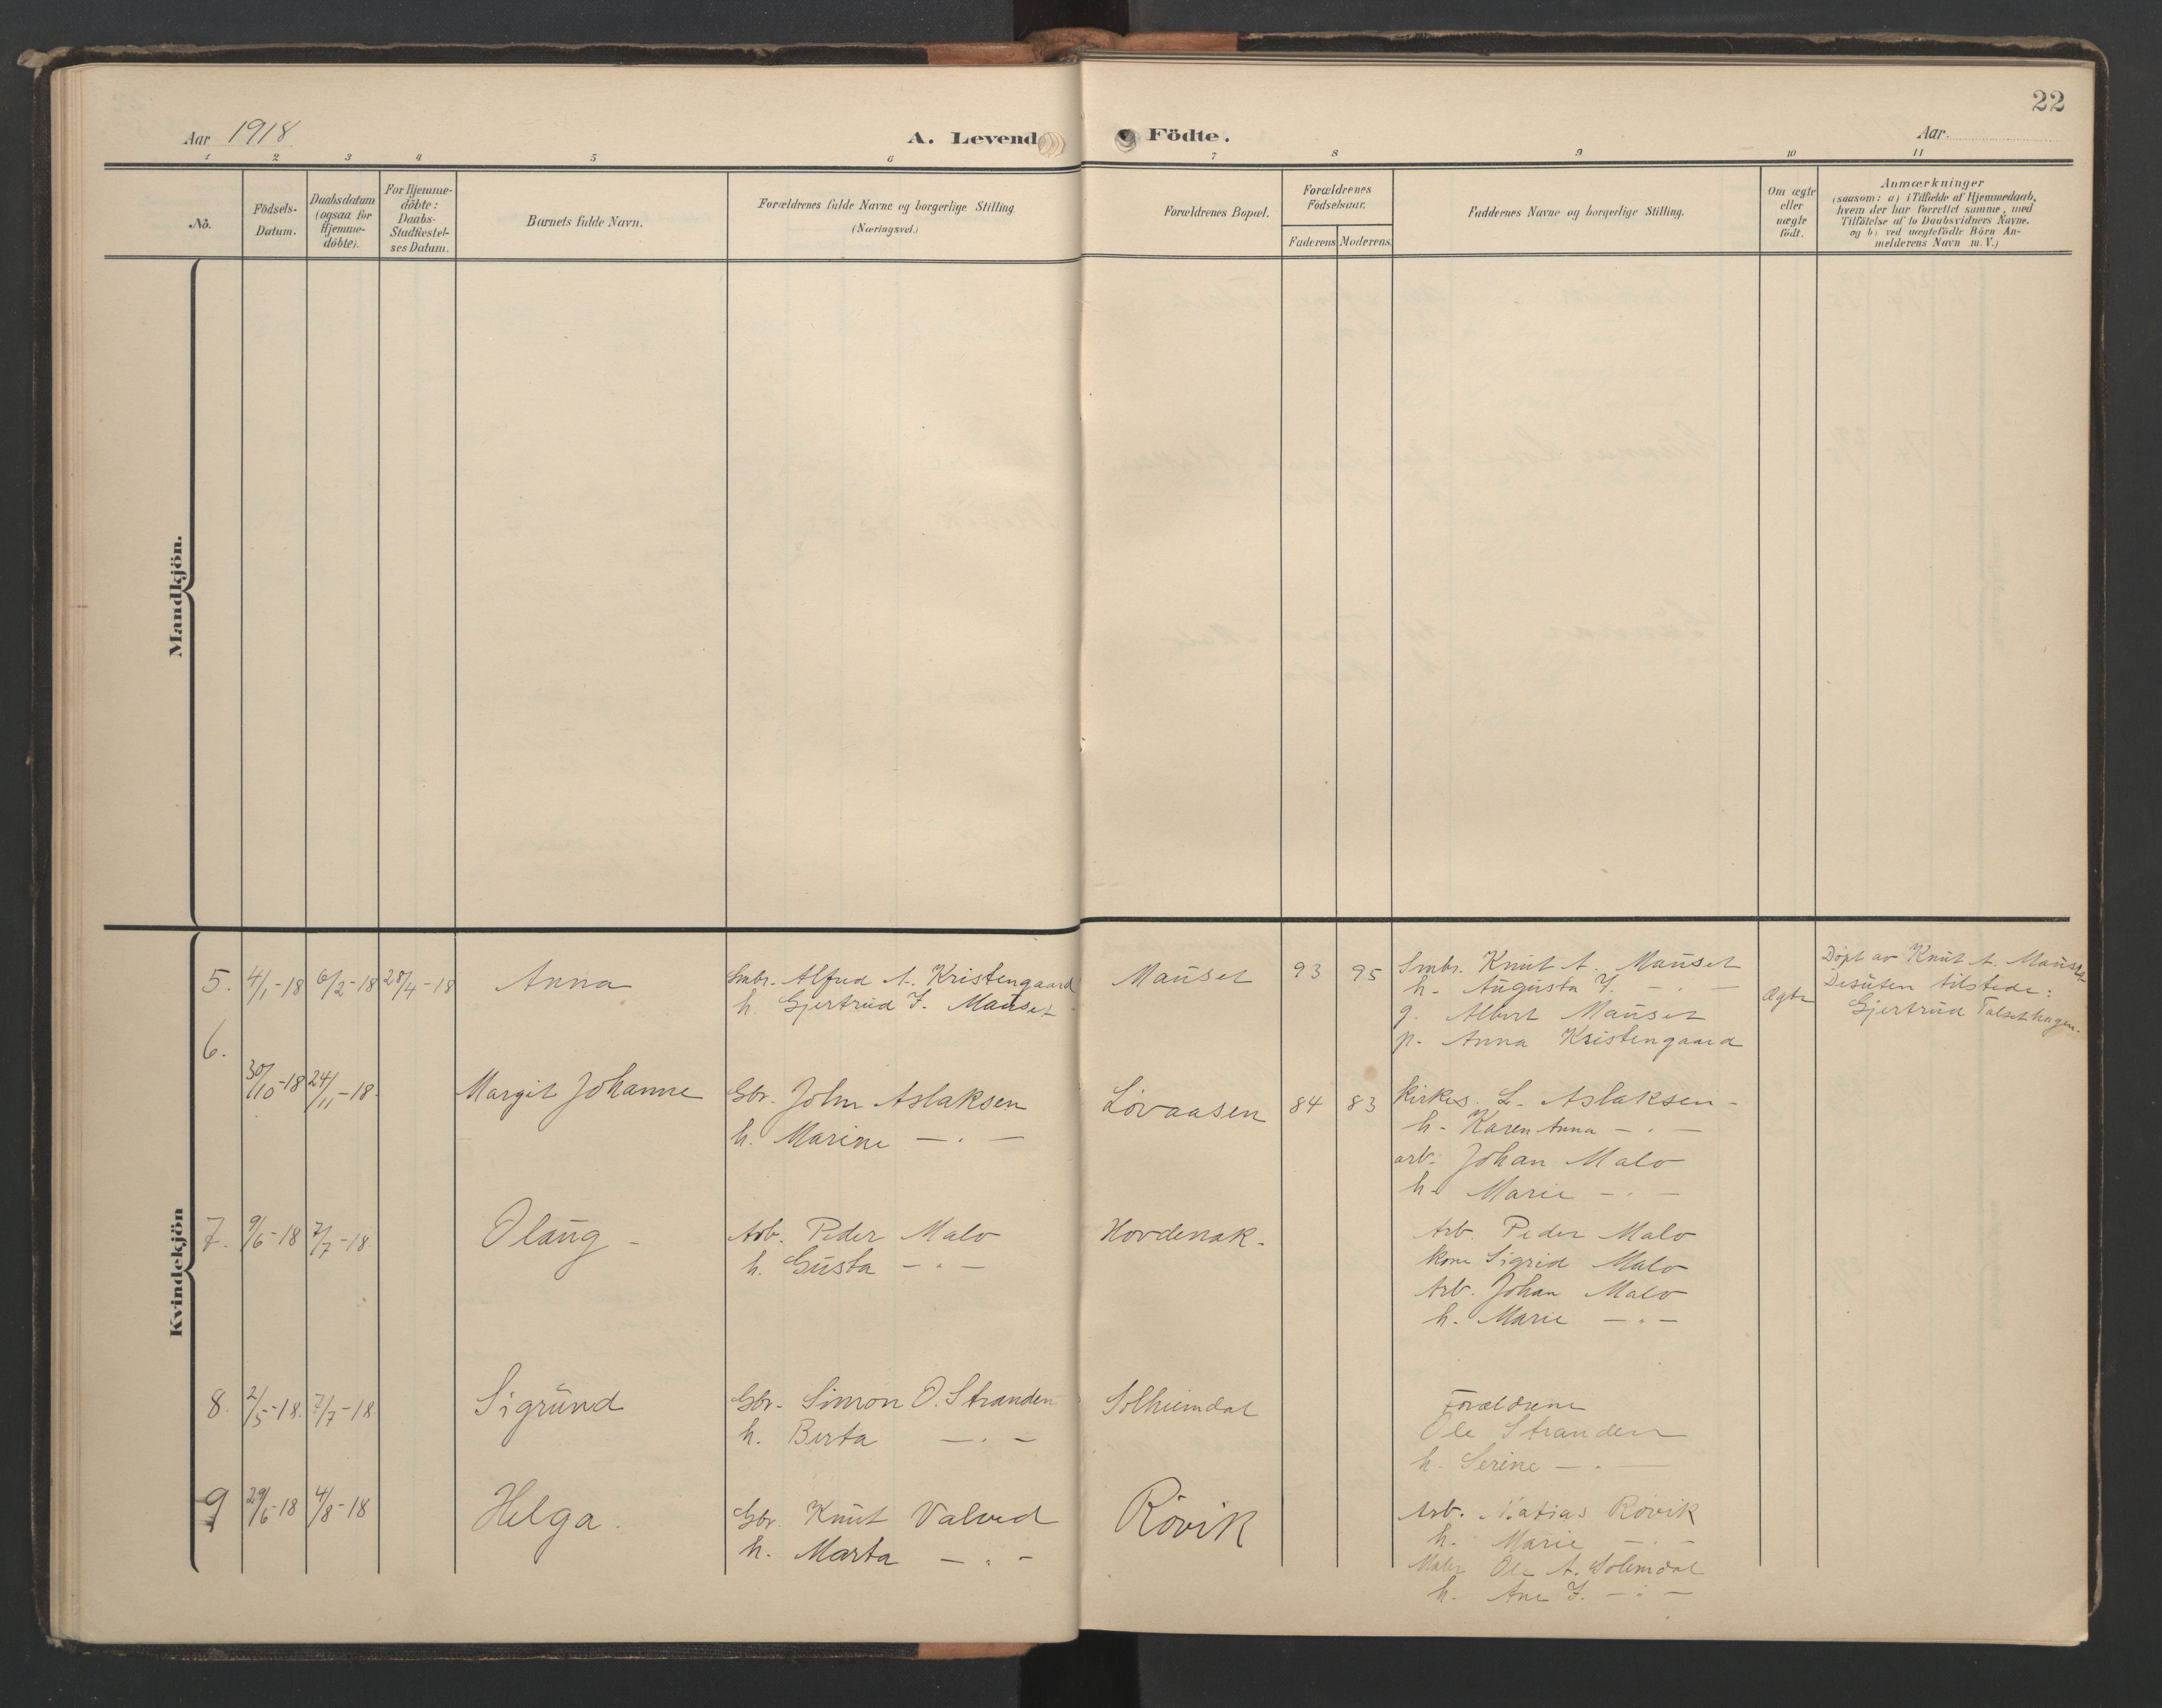 22
Aar 1918
A. Levend
Födte.
Aar.
1 2 3 4 5 6 7 8 9 10 11
No.
Födsels-
Datum.
Daabsdatum
(ogsaa for
Hjemme-
döbte).
For Hjemme-
döbte:
Daabs-
Stadfæstel-
ses Datum.
Barnets fulde Navn.
Forældrenes fulde Navne og borgerlige Stilling
(Næringsvei.)
Forældrenes Bopæl.
Forældrenes
Födselsaar.
Faderens Moderens
Faddernes Navne og borgerlige Stilling.
Om ægte
eller
uægte
født.
Anmærkninger
(saasom: a) i Tilfælde af Hjemmedaab,
hvem der har forrettet samme, med
Tilföielse af to Daabsvidners Navne.
og b) ved uægtefödte Börn An-
melderens Navn m. V.)
Mandkjön.
Kvindekjön
5. 4/1-18 6/2-18 28/4-18 Anna
Smbr. Alfred A. Kristengaard
h. Gjertrud J. Mauset
Mauset 93 95
Smbr. Knut A. Mauset
h. Augusta J. — " —
g. Albert Mauset
p. Anna Kristengaard
Ægte
Døpt av Knut A. Mauset
Desuten tilstede:
Gjertrud Talsethagen.
6.
30/10-18 24/11-18. Margit Johanne
Gbr. John Aslaksen
h. Marine — " —
Lövaasen 84 83
Kirkes. L. Aslaksen -
h. Karen Anna — " —
arb. Johan Malo
h. Marie — " —
7. 9/6-18 7/7-18 Olaug -
Arb. Peder Malo
h. Gusta — " —
Hovdenak.
Arb. Peder Malo
kone Sigrid Malo
Arb. Johan Malo
h. Marie — " —
8. 2/5-18. 7/7-18. Sigrund
Gbr. Simon O. Stranden
h. Berta — " —
Solheimdal
Forældrene
Ole Stranden
h. Serine — " —
9 29/6-18 4/8-18 Helga.
Gbr. Knut Valved
h. Marta — " —
Rövik
Arb. Matias Rövik
h. Marie — " —
Maler Ole A. Solemdal
h. Ane J. — " —